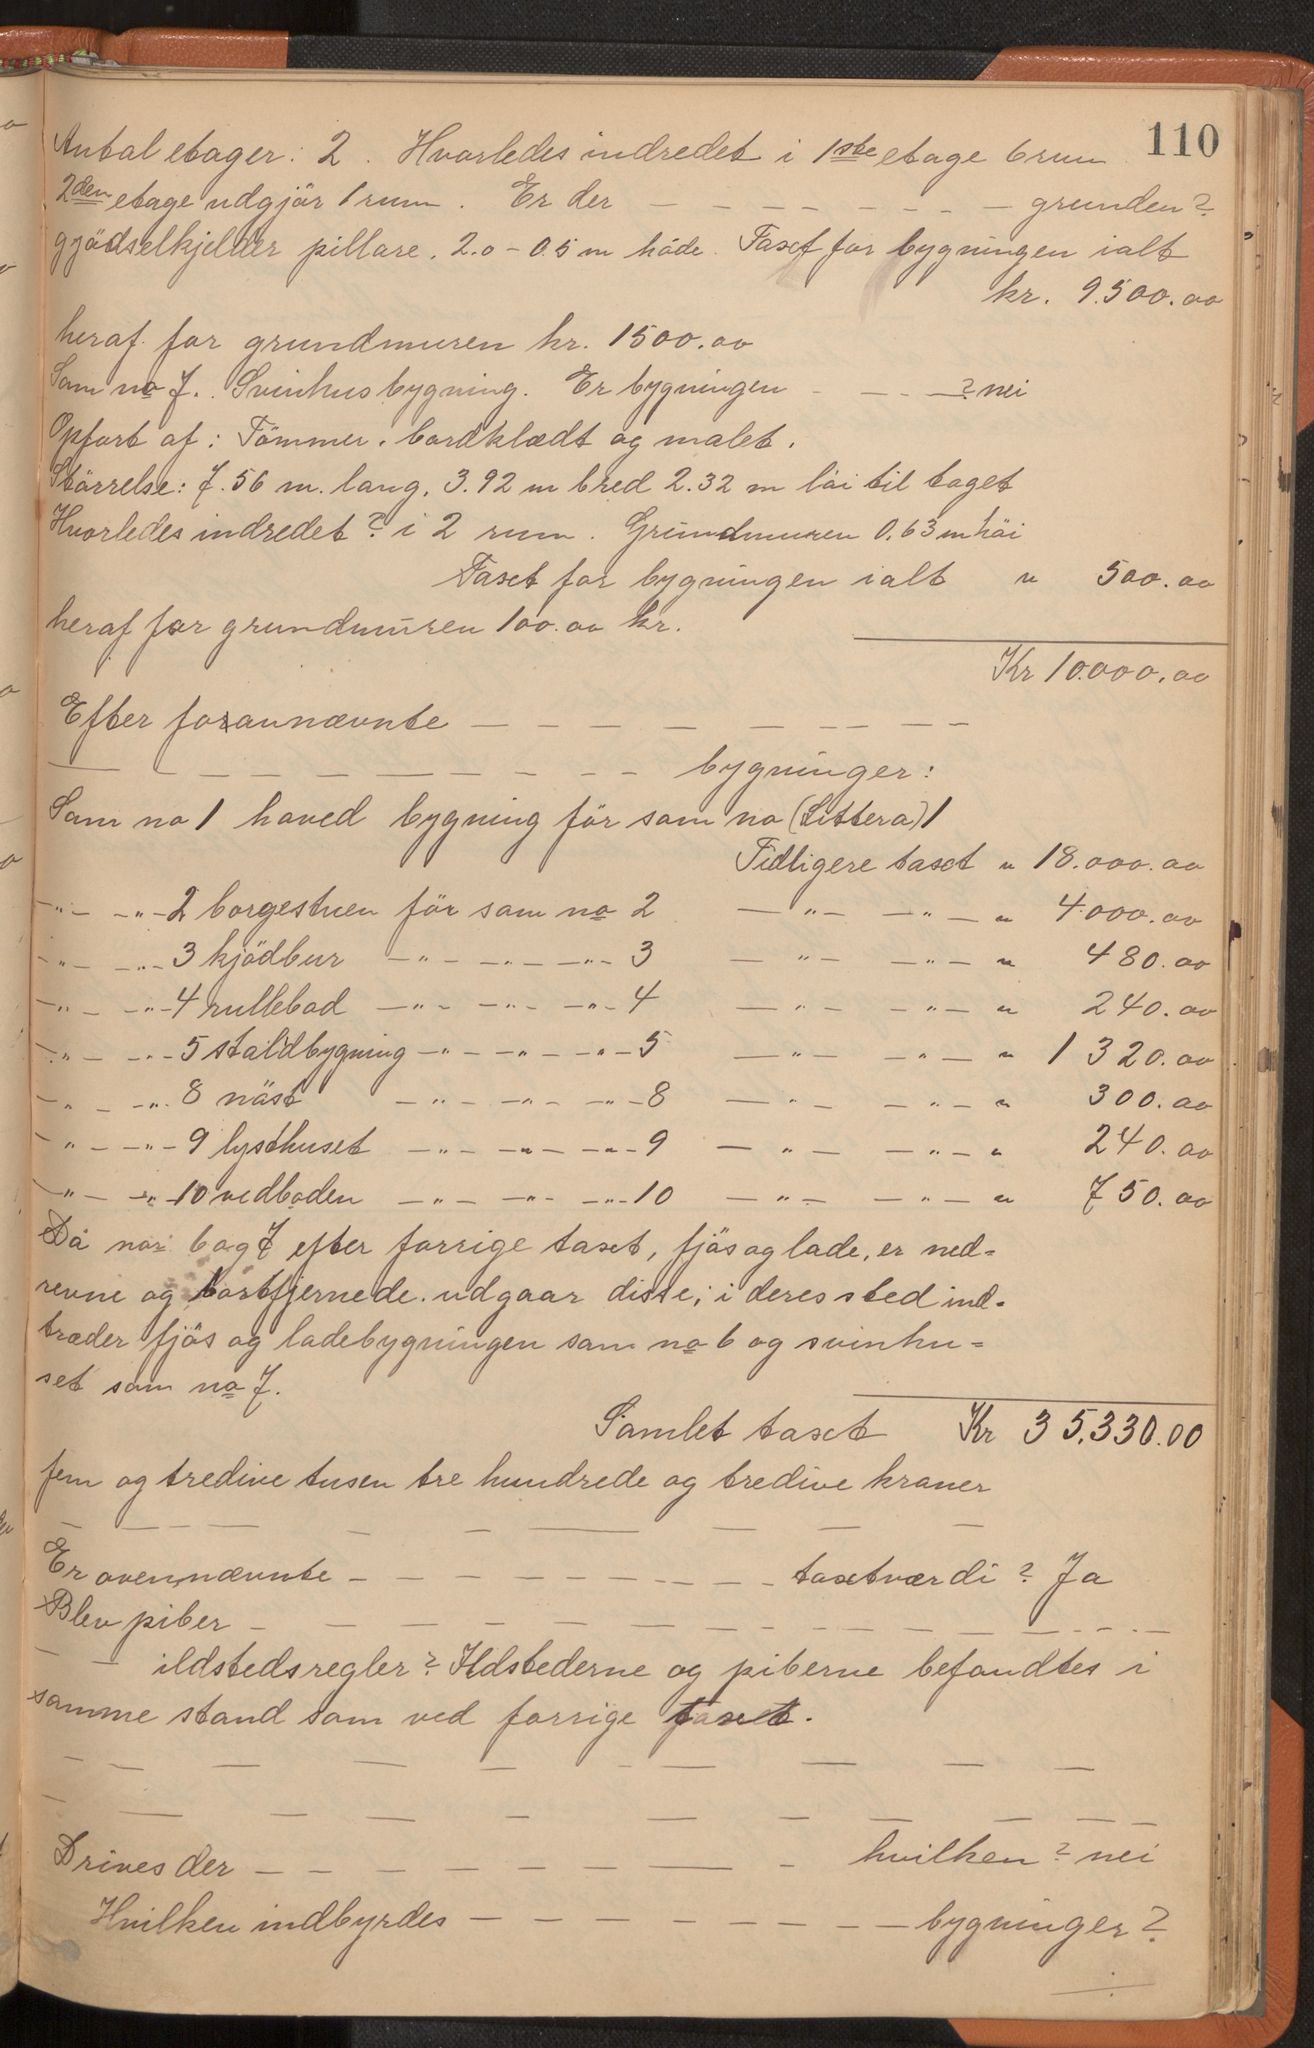 110
Antal etager: 2. Hvorledes indredet i 1ste etage 6 rum
2den etage udgjör 1 rum. Er der — — — — — — — — grunden?
gjödselkjelder pillare. 2.0 – 0.5 m höde. Taxt for bygningen ialt
kr. 9.500.00
heraf for grundmuren kr. 1500.00
Som no 7. Svinhusbygning. Er bygningen - — - — ? nei
Opfört af: Tömmer. bordklædt og malet.
Störrelse: 7.56 m. lang, 3.92 m bred 2.32 m höi til taget
Hvorledes indredet? i 2 rum. Grundmuren 0.63 m höi
Taxt for bygningen ialt " 500.00
heraf for grundmuren 100.00 kr.
Kr 10.000.00
Efter forannævnte — — — — — — — — —
— — — — — — — — - - bygninger:
Som no 1 hoved bygning för som no (Littera) 1
Tidligere taxt " 18.000.00
—"— —"— 2 borgestuen för som no 2 —"— —"— " 4000.00
—"— —"— 3 kjödbur —"— —"— —"— 3 —"— —"— " 480.00
—"— —"— 4 rullebod —"— —"— —"— 4 —"— —"— " 240.00
—"— —"— 5 staldbygning —"— —"— —"— 5 —"— —"— " 1 320.00
—"— —"— 8 nöst —"— —"— —"— 8 —"— —"— " 300.00
—"— —"— 9 lysthuset —"— —"— —"— 9 —"— —"— " 240.00
—"— —"— 10 vedboden —"— —"— —"— 10 —"— —"— " 750.00
Då nor 6 og 7 efter forrige taxt, fjös og lade, er ned=
revne og bortfjernede. udgaar disse; i deres sted ind=
træder fjös og ladebygningen som no 6 og svinhu=
set som no 7.
Samlet taxt Kr 35.330.00
fem og tredive tusen tre hundrede og tredive kroner
— — — — — — — — — —
Er ovennævnte — — — — — — — — — taxtværdi? Ja
Blev piber — — — — — — — — — — — — — —
— — ildstedsregler? Ildstederne og piberne befandtes i
samme stand som ved forrige taxt.
— — — — — — — — — —
— — — — — — — — — —
Drives der — — — — — — — — — hvilken? nei
Hvilken indbyrdes — — — — — — — — — bygninger?